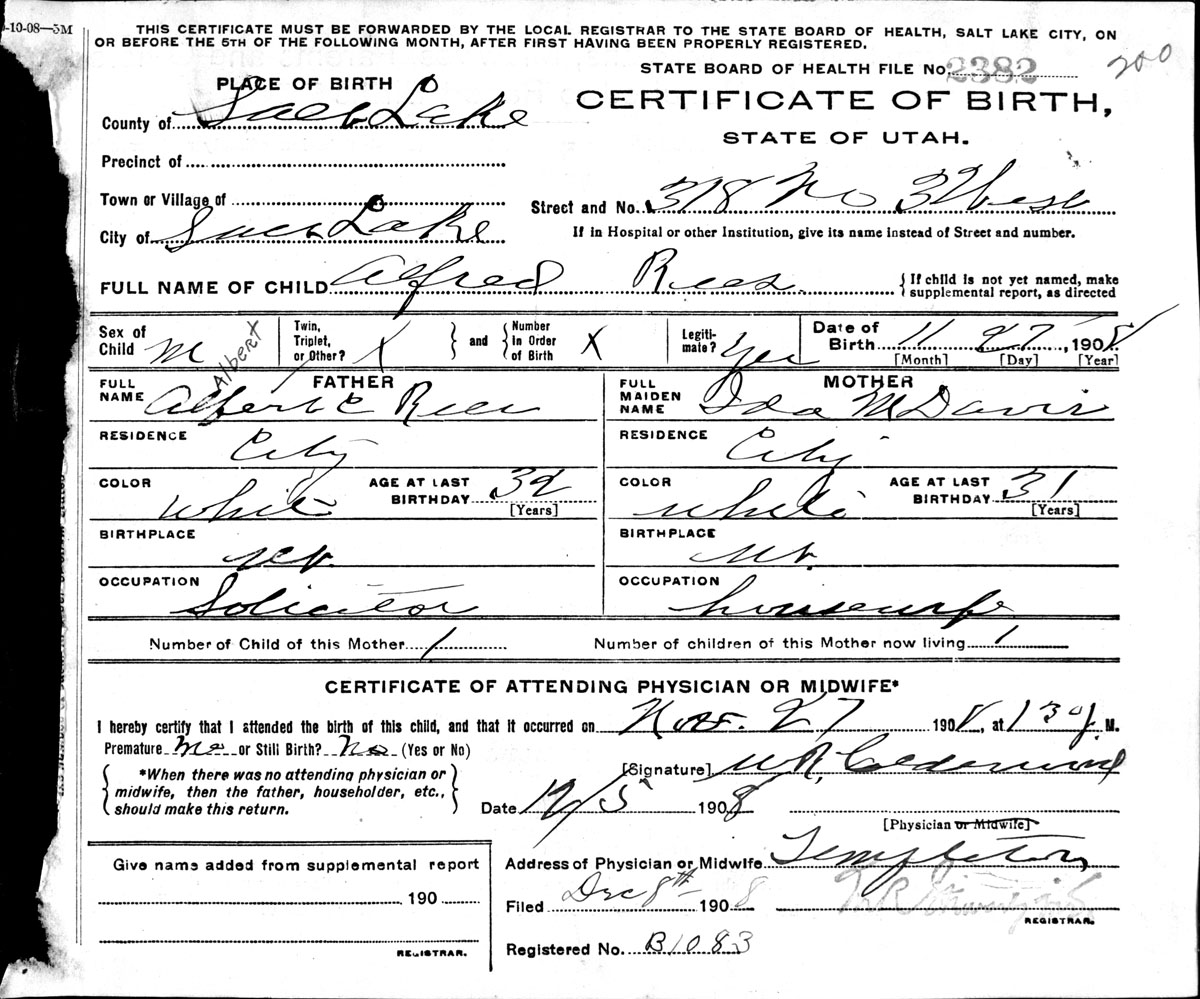 -10-08—5M
THIS CERTIFICATE MUST BE FORWARDED BY THE LOCAL REGISTRAR TO THE STATE BOARD OF HEALTH, SALT LAKE CITY, ON
OR BEFORE THE 5TH OF THE FOLLOWING MONTH, AFTER FIRST HAVING BEEN PROPERLY REGISTERED.
STATE BOARD OF HEALTH FILE No. 2382
200
PLACE OF BIRTH
CERTIFICATE OF BIRTH,
STATE OF UTAH.
County of Salt Lake
Precinct of
Town or Village of
Street and No. 318 No 3 West
City of Salt Lake
If in Hospital or other Institution, give its name instead of Street and number.
FULL NAME OF CHILD Alfred Rees
{ If child is not yet named, make
supplemental report, as directed
Sex of Child M
Twin, Triplet, or Other? X
and
Number in Order of Birth X
Legiti-mate? Yes
Date of Birth 11 27, 1908
[Month] [Day] [Year]
Albert
FATHER
FULL NAME Alfert C Rees
MOTHER
FULL MAIDEN NAME Ida M Davis
RESIDENCE City
RESIDENCE City
COLOR White
AGE AT LAST BIRTHDAY 32
[Years]
COLOR White
AGE AT LAST BIRTHDAY 31
[Years]
BIRTHPLACE Ut.
BIRTHPLACE Ut.
OCCUPATION Solicitor
OCCUPATION housewife
Number of Child of this Mother 1
Number of children of this Mother now living 1
CERTIFICATE OF ATTENDING PHYSICIAN OR MIDWIFE*
I hereby certify that I attended the birth of this child, and that it occurred on Nov. 27 1908, at 1 30 M.
Premature No or Still Birth? No (Yes or No)
*When there was no attending physician or
midwife, then the father, householder, etc.,
should make this return.
[Signature] W R Calderwood
Date 12/5 1908
[Physician or Midwife]
Give name added from supplemental report
190
REGISTRAR.
Address of Physician or Midwife Templeton
Filed Dec 8th 1908
REGISTRAR.
Registered No. B1083